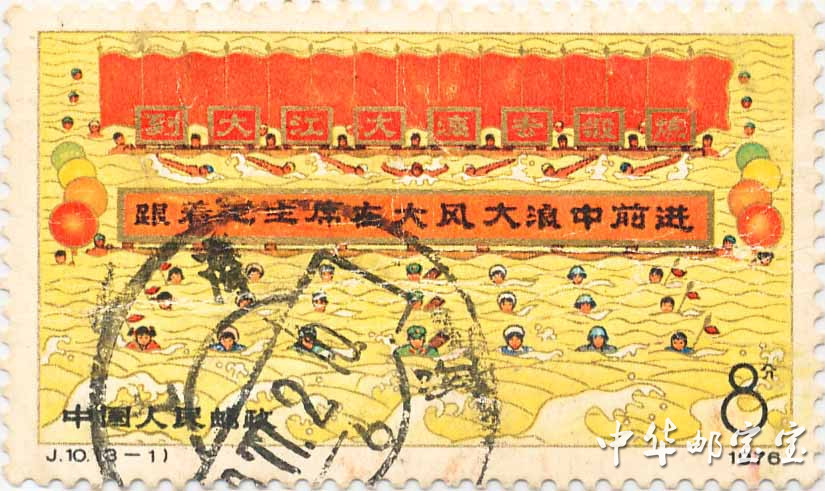 到大江大海去锻炼
跟着毛主席在大风大浪中前进
8分
中国人民邮政
J.10.(3-1)
1976
中华邮宝宝